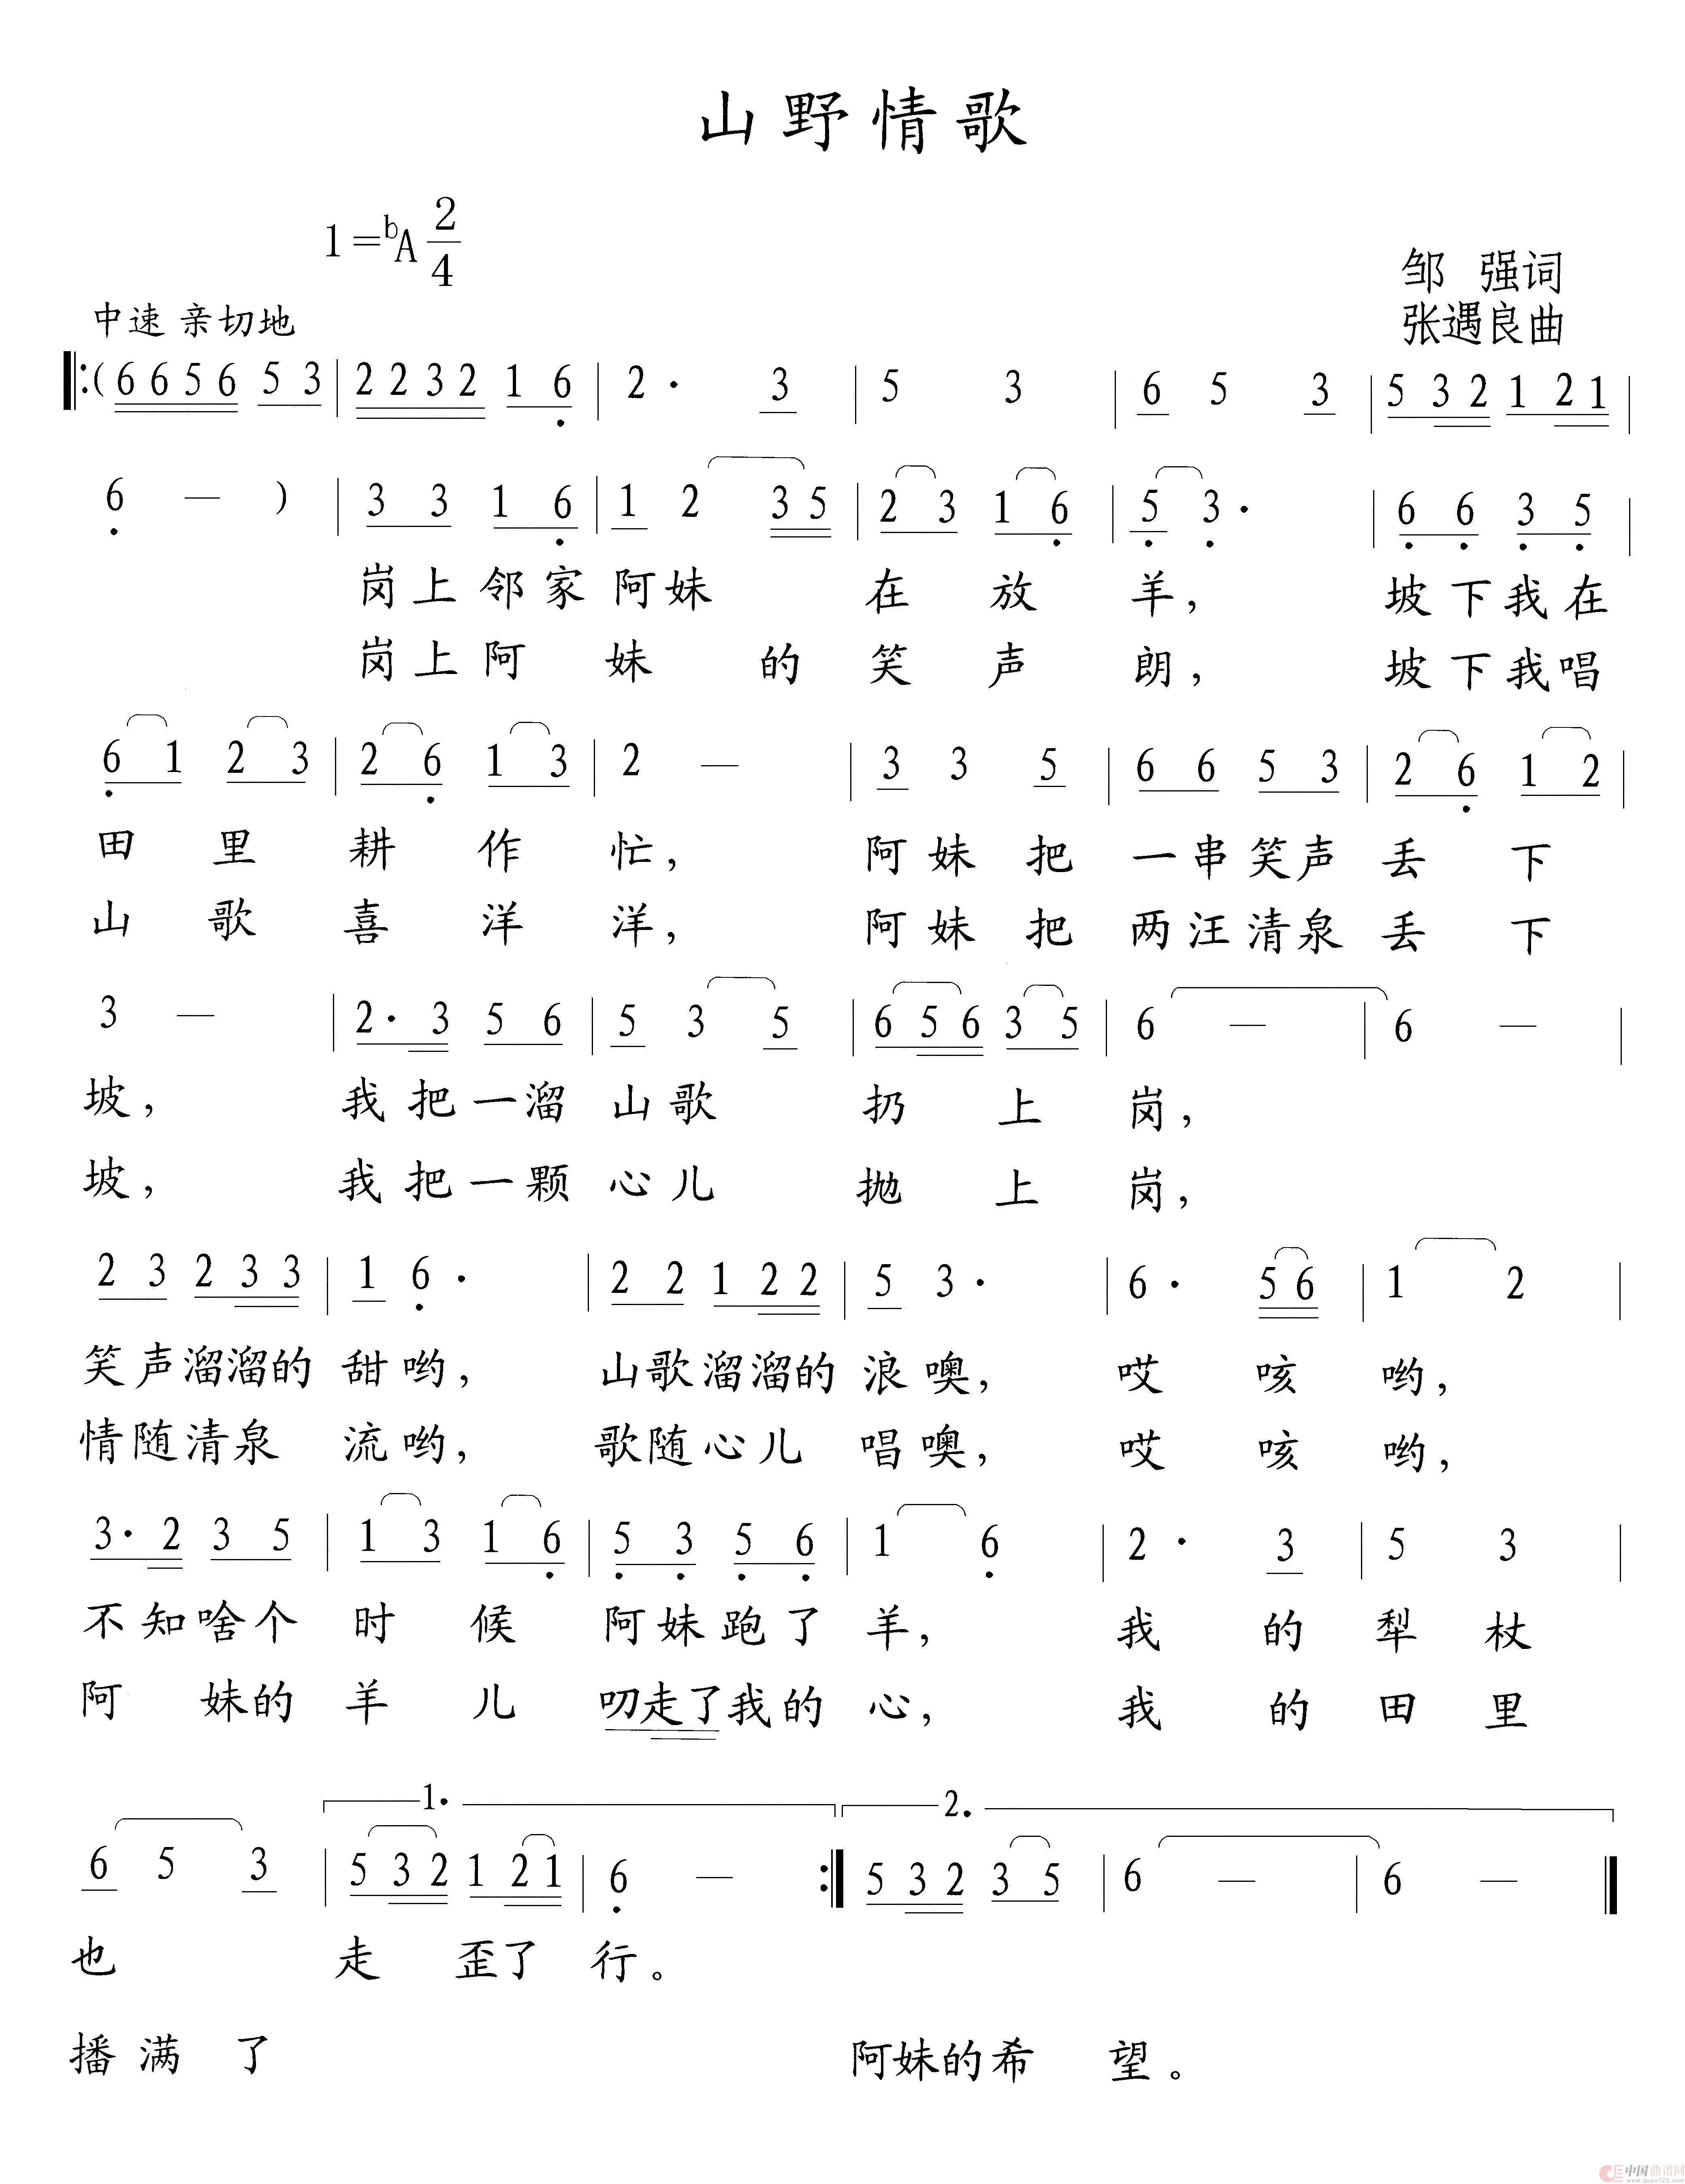 山野情歌
1=bA 2/4
邹 强词
中速 亲切地
张遇良曲
(6 6 5 6 5 3 | 2 2 3 2 1 6 | 2 · 3 | 5 3 | 6 5 3 | 5 3 2 1 2 1 |
6 — ) | 3 3 1 6 | 1 2 3 5 | 2 3 1 6 | 5 3 · | 6 6 3 5 |
岗上邻家阿妹 在 放 羊, 坡下我在
岗上阿 妹 的 笑 声 朗, 坡下我唱
6 1 2 3 | 2 6 1 3 | 2 — | 3 3 5 | 6 6 5 3 | 2 6 1 2 |
田 里 耕 作 忙, 阿妹把 一串笑声丢 下
山 歌 喜 洋 洋, 阿妹把 两汪清泉丢 下
3 — | 2 · 3 5 6 | 5 3 5 | 6 5 6 3 5 | 6 — | 6 — |
坡, 我把一溜 山歌 扔 上 岗,
坡, 我把一颗 心儿 抛 上 岗,
2 3 2 3 3 | 1 6 · | 2 2 1 2 2 | 5 3 · | 6 · 5 6 | 1 2 |
笑声溜溜的 甜哟, 山歌溜溜的 浪噢, 哎 咳 哟,
情随清泉 流哟, 歌随心儿 唱噢, 哎 咳 哟,
3 · 2 3 5 | 1 3 1 6 | 5 3 5 6 | 1 6 | 2 · 3 | 5 3 |
不知啥个 时 候 阿妹跑了 羊, 我 的 犁 杖
阿 妹的 羊 儿 叨走了我的 心, 我 的 田 里
1. 2.
6 5 3 | 5 3 2 1 2 1 | 6 — :| 5 3 2 3 5 | 6 — | 6 — ‖
也 走 歪了 行。
播满 了 阿妹的希 望。
中国曲谱网
www.qupu123.com